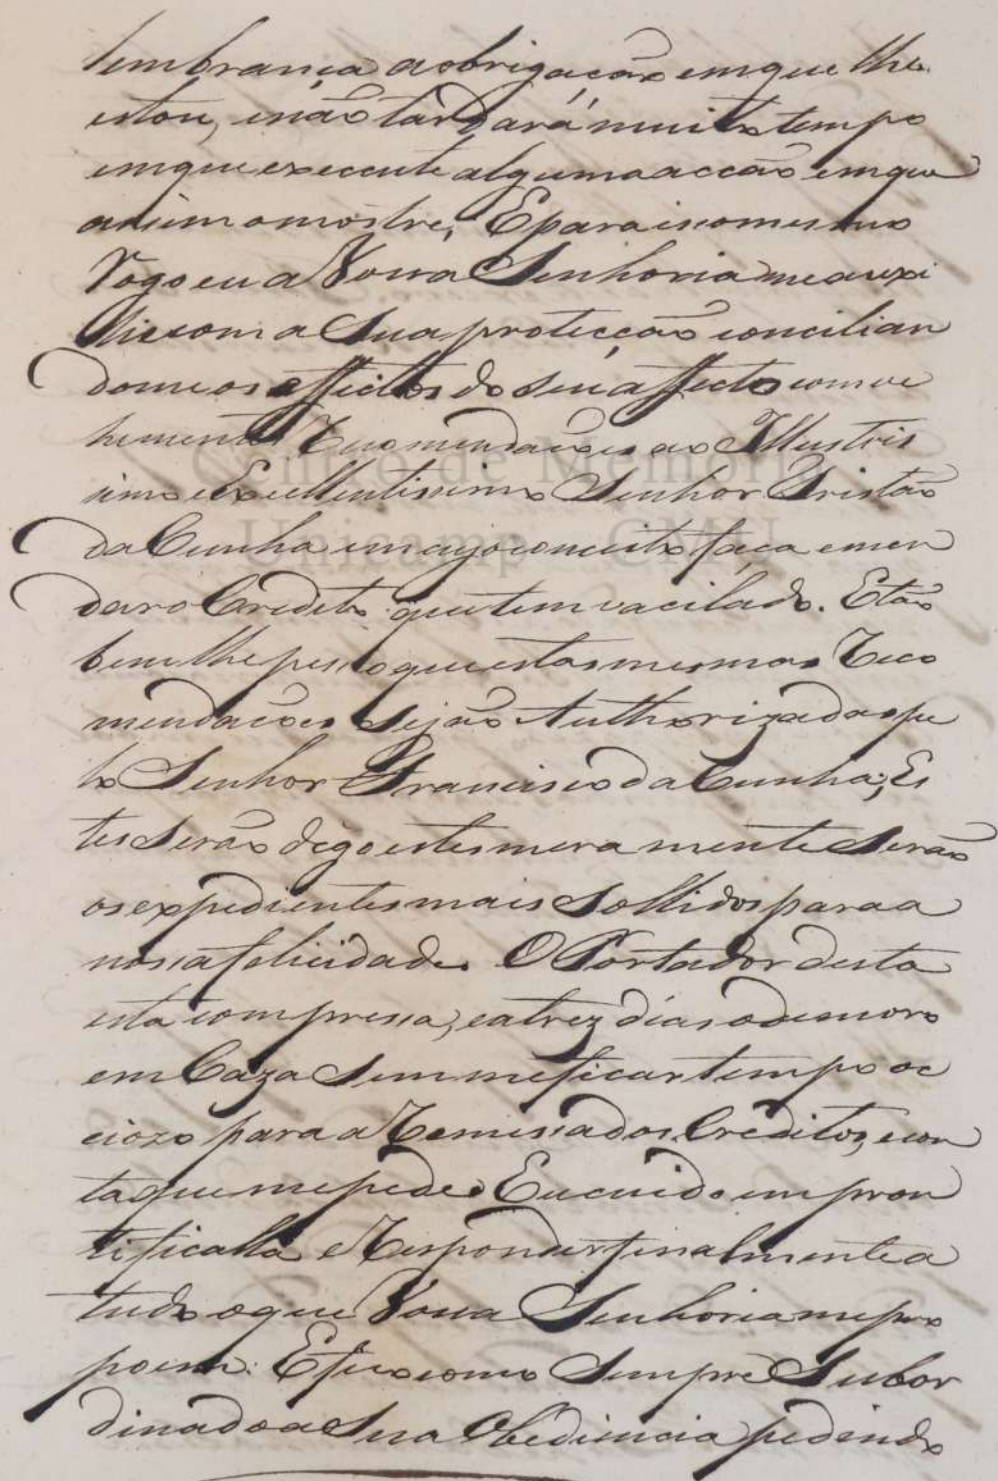 lembrança aobrigação emque lhe
estou, enão tardará muito tempo
emque execute algumaacção emque
assim omostre, Eparaissomesmo
Rogoeu a Vossa Senhoria meauxi
lliecom a Sua protecção concilian
domeos effeitos do seu affecto comve
hementes Recomendaçoens ao Illustris
simo eExcellentissimo Senhor Tristão
da Cunha emcujoconceito faça emen
daro Credito quetem vacilado. Etão
bem lhe pesso queestasmesmas Reco
mendacoes Sejão Authorizadaspe
lo Senhor Francisco da Cunha; Es
tes Serão digo estes meramente Serão
os expedientes mais Sollidos para a
nossa felicidade. O Portador desta
esta compressa, eatrez dias odemoro
em Caza Sem meficar tempo oc
ciozo para a Remessa dos Creditos, econ
taque mepede. Eucuido empron
tificalla e Responder finalmente a
tudo oque Vossa Senhoria mepro
poem. Efico como Sempre Subor
dinado a Sua Obediencia pedindo
Centro de Memória
Unicamp - CMU